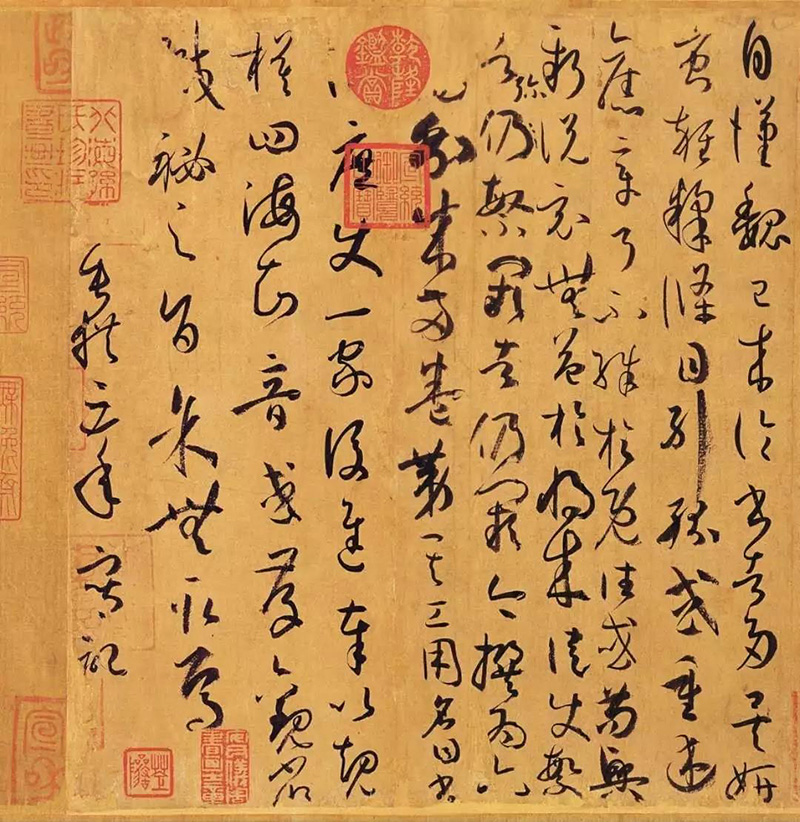 自漢魏已来論書者多矣妍
蚩雜糅條目糺紛或重述
舊章了不殊於既往或苟興
新説竟無益於將来徒使繁
者弥仍繁闕者仍闕今撰為六
篇分成两卷第其工用名曰書
譜庶使一家後進奉以規
模四海知音或存觀省
緘秘之旨余無取焉
垂拱三年寫記
乾隆鑑賞